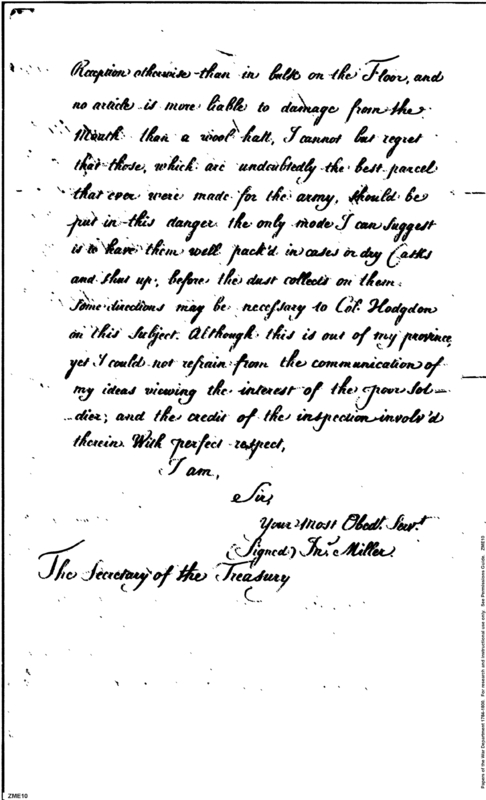 Reception otherwise than in bulk on the Floor, and
no article is more liable to damage from the
Mouth than a wool hatt, I cannot but regret
that those, which are undoubtedly the best parcel
that ever were made for the army, should be
put in this danger the only mode I can suggest
is to have them well pack'd in cases or dry Casks
and shut up, before the dust collects on them.
Some directions may be necessary to Col. Hodgdon
on this subject. Although this is out of my province,
yet I could not refrain from the communication of
my ideas viewing the interest of the poor Sol-
-dier; and the credit of the inspection involv'd
therein. With perfect respect,
I am,
Sir,
Your Most Obedt. Servt.
(Signed) Jno. Miller
The Secretary of the Treasury
ZME10
Papers of the War Department 1784-1800. For research and instructional use only. See Permissions Guide. ZME10